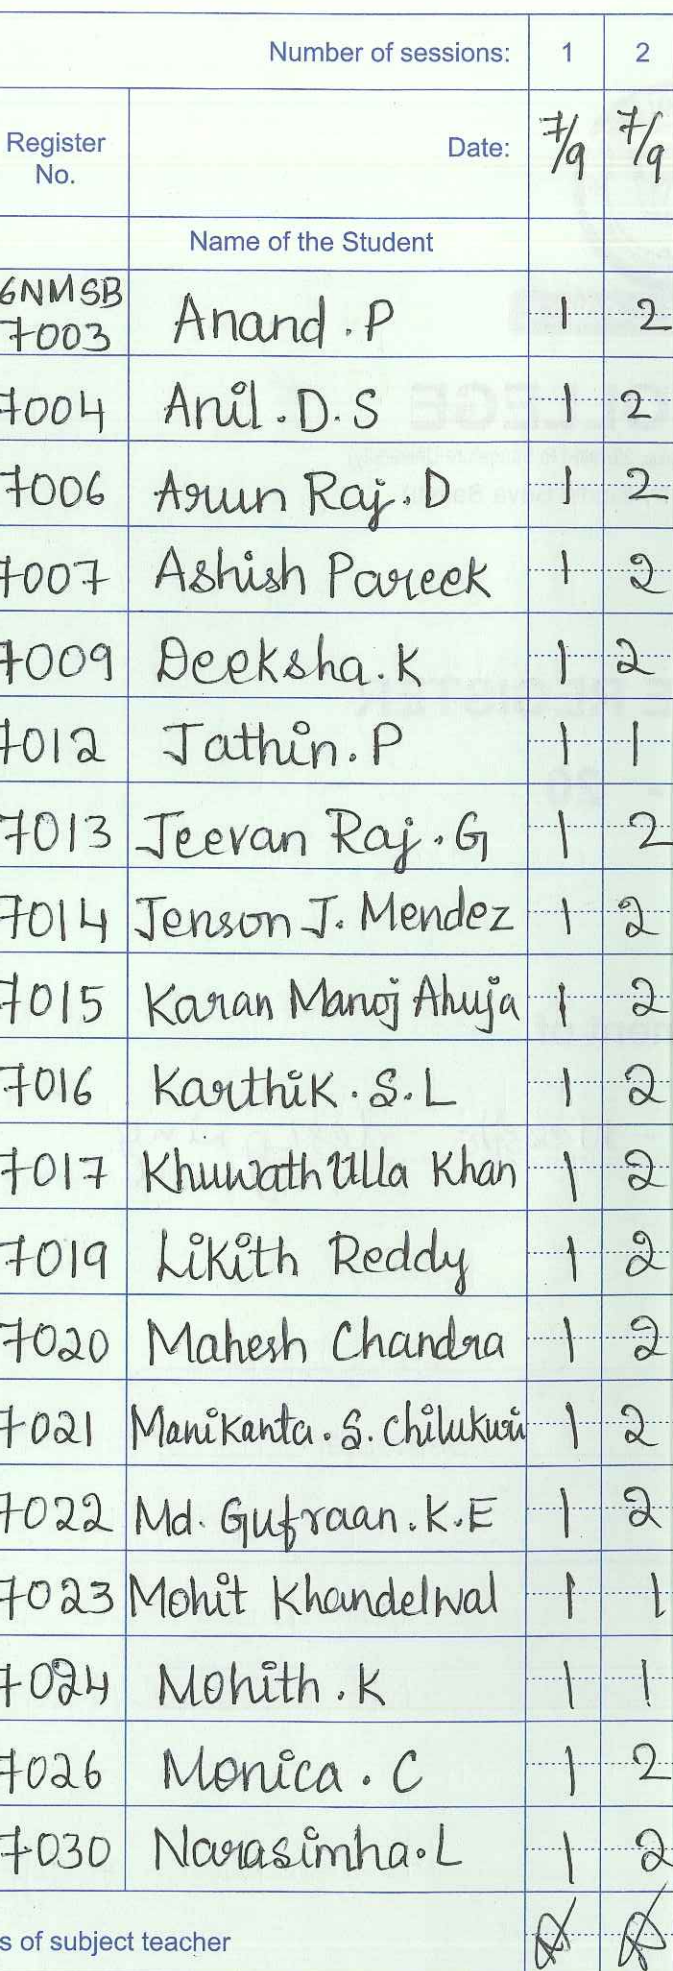 Number of sessions: 1 2
Register No. Date: 7/9 7/9
Name of the Student
6NMSB
7003 Anand . P 1 2
7004 Anil . D . S 1 2
7006 Arun Raj . D 1 2
7007 Ashish Pareek 1 2
7009 Deeksha . K 1 2
7012 Jathin . P 1 1
7013 Jeevan Raj . G 1 2
7014 Jenson J. Mendez 1 2
7015 Karan Manoj Ahuja 1 2
7016 Karthik . S . L 1 2
7017 Khuwath Ulla Khan 1 2
7019 Likith Reddy 1 2
7020 Mahesh Chandra 1 2
7021 Manikanta . S. Chilukuri 1 2
7022 Md. Gufraan . K . E 1 2
7023 Mohit Khandelwal 1 1
7024 Mohith . K 1 1
7026 Monica . C 1 2
7030 Narasimha . L 1 2
s of subject teacher